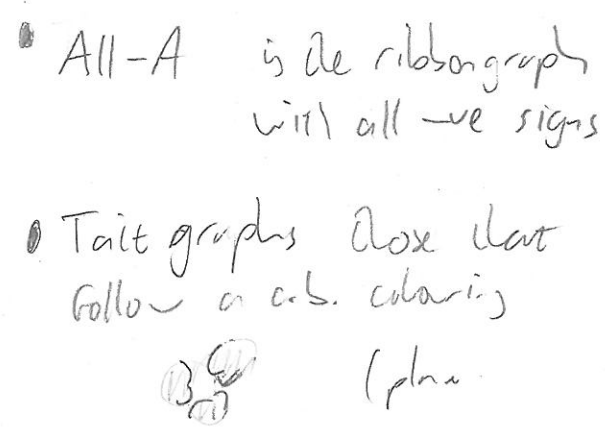 • All-A is the ribbon graph
with all -ve signs
• Tait graphs those that
follow a c.b. colouring
(plane